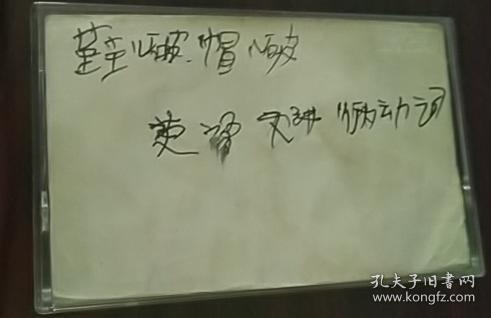 鞋儿破、帽儿破
英语 动词
孔夫子旧书网
www.kongfz.com